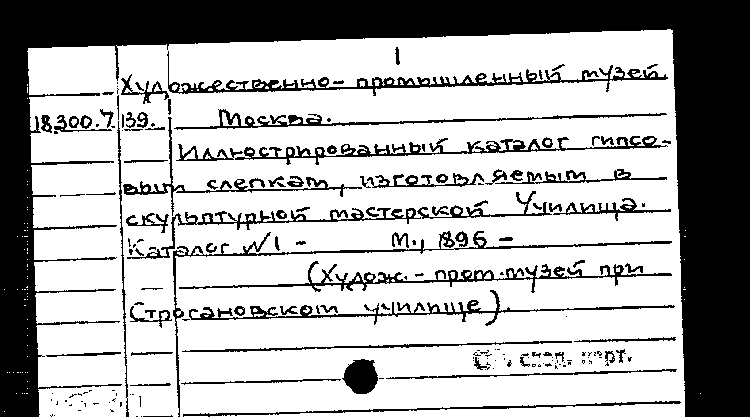 1
Художественно-промышленный музей
18.300.7 139. Москва.
Иллюстрированный каталог гипсо-
вым слепкам, изготовляемым в
скульптурной мастерской Училища.
Каталог №1 - М., 1896 -
(Худож.-пром. музей при
Строгановском училище).
След. карт.